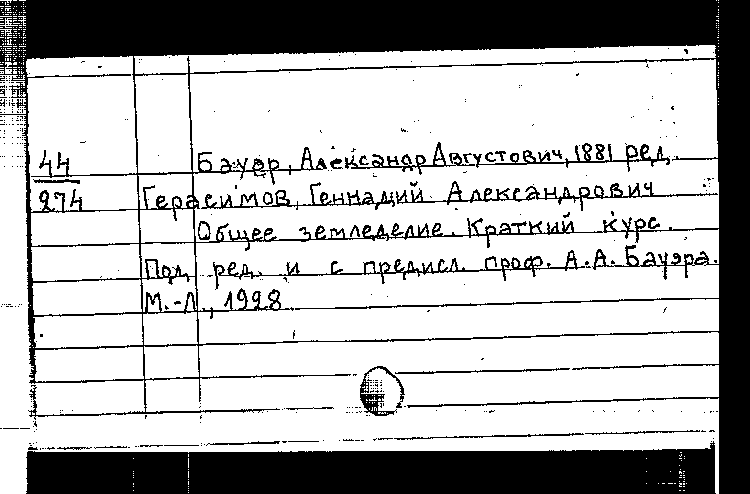 44 Бауэр, Александр Августович, 1881 ред.
274 Герасимов, Геннадий Александрович
Общее земледелие. Краткий курс.
Под ред. и с предисл. проф. А.А. Бауэра.
М.-Л., 1928